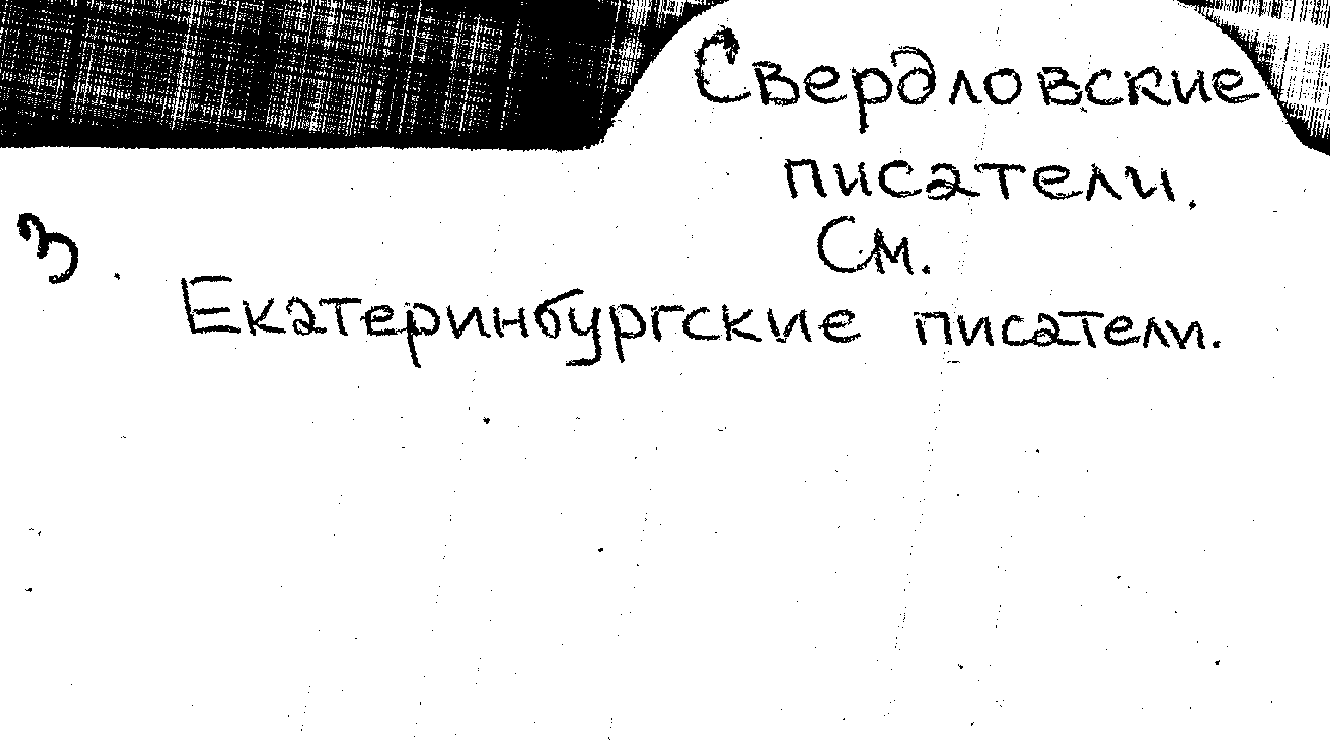 Свердловские
писатели.
См.
З.
Екатеринбургские писатели.